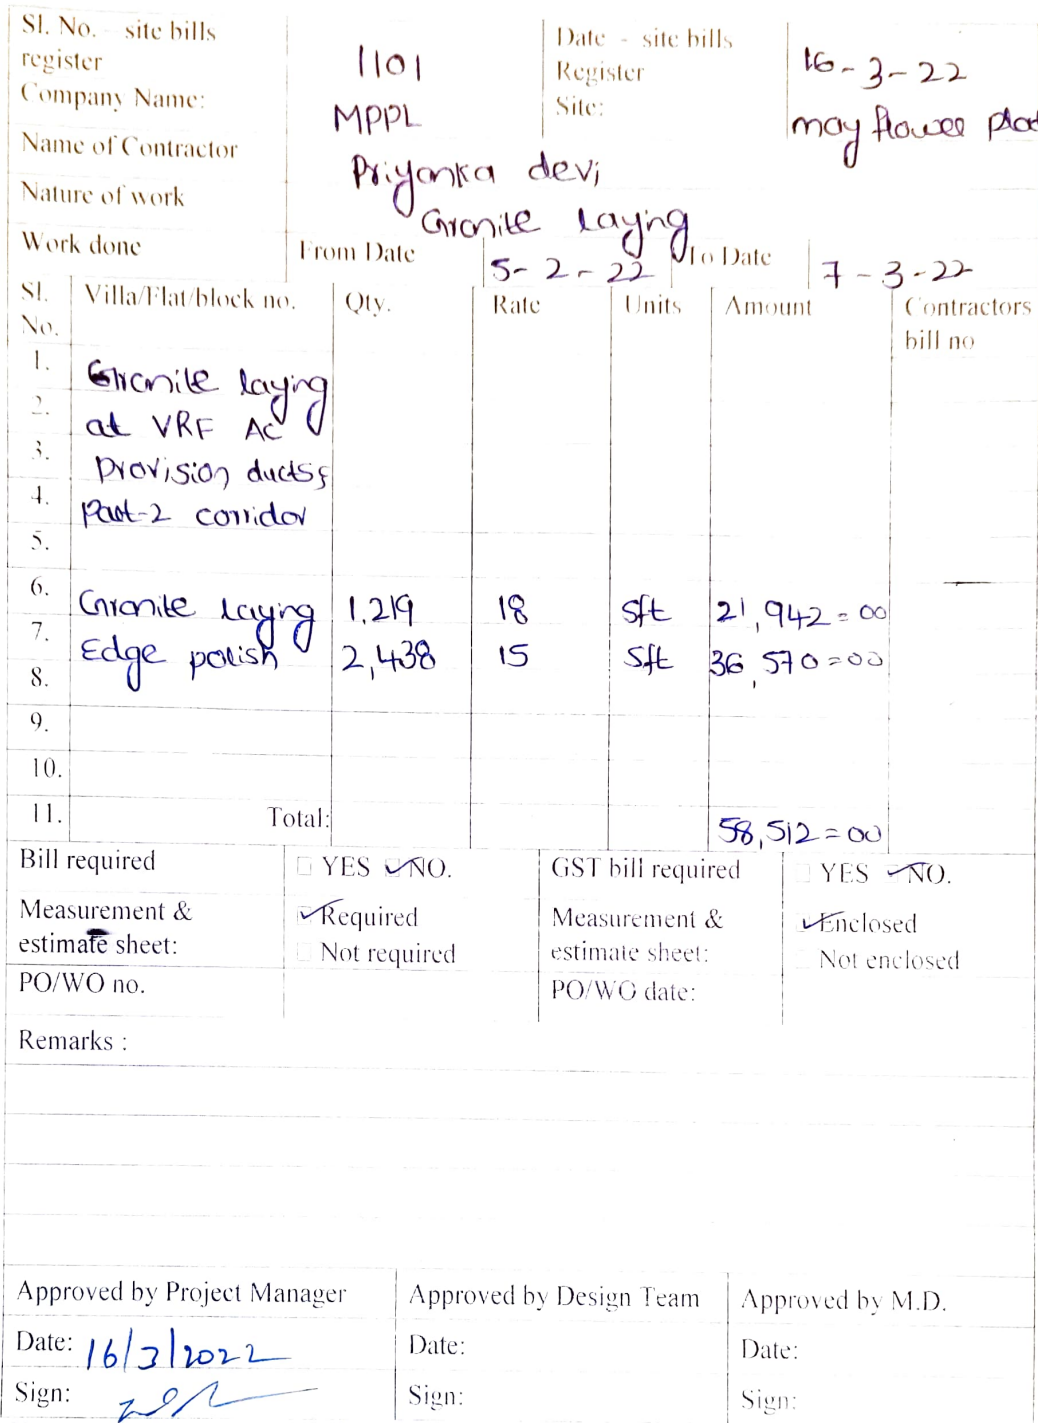 Sl. No. - site bills register 1101 Date - site bills Register 16-3-22
Company Name: MPPL Site: may flower
Name of Contractor Priyanka devi
Nature of work Granite laying
Work done From Date 5-2-22 To Date 7-3-22
Sl. No. Villa/Flat/block no. Qty. Rate Units Amount Contractors bill no
1. Granite laying
2. at VRF AC
3. Provision ducts &
4. Part-2 corridor
5.
6. Granite laying 1,219 18 sft 21,942=00
7. Edge polish 2,438 15 sft 36,570=00
8.
9.
10.
11. Total: 58,512=00
Bill required YES NO. GST bill required YES NO.
Measurement & estimate sheet: Required Measurement & estimate sheet: Enclosed
Not required Not enclosed
PO/WO no. PO/WO date:
Remarks :
Approved by Project Manager Approved by Design Team Approved by M.D.
Date: 16/3/2022 Date: Date:
Sign: Sign: Sign: